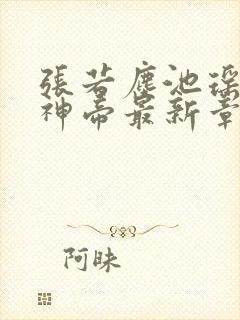 張若塵池瑤
神帝最新章
阿昧